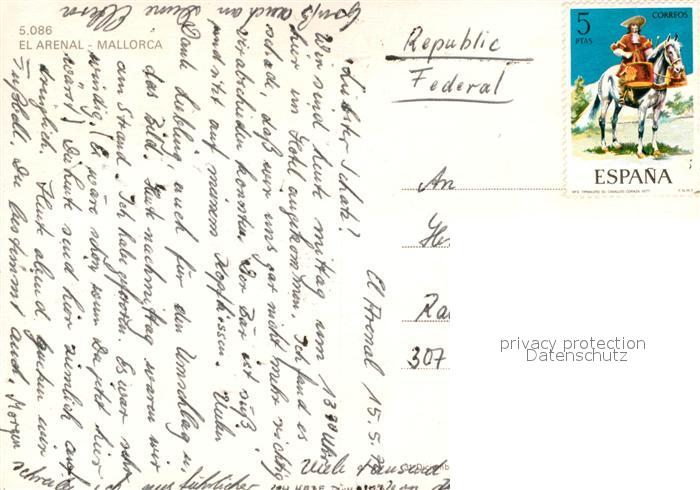 5.086
EL ARENAL - MALLORCA
El Arenal 15.5.
Liebster Schatz!
Wir sind heute mittag um 13 20 Uhr
hier im Hotel angekommen. Ich fand es
schade, daß wir uns gar nicht mehr richtig
verabschieden konnten. Der Bär ist süß
und sitzt auf meinem Kopfkissen. Vielen
Dank Liebling, auch für den Umschlag u.
das Bild. Heute nachmittag waren wir
am Strand. Ich habe gefroren. Es war sehr
windig! Es wäre schön wenn Du jetzt hier
wärst! Die Leute sind hier ziemlich auf
dringlich. Heute abend gucken wir
Fußball. Du bestimmt auch. Morgen
schreibe
ausführlicher
Viele tausend
Gruß auch an
Deine
Republic
Federal
An
307
5
PTAS
CORREOS
ESPAÑA
privacy protection
Datenschutz